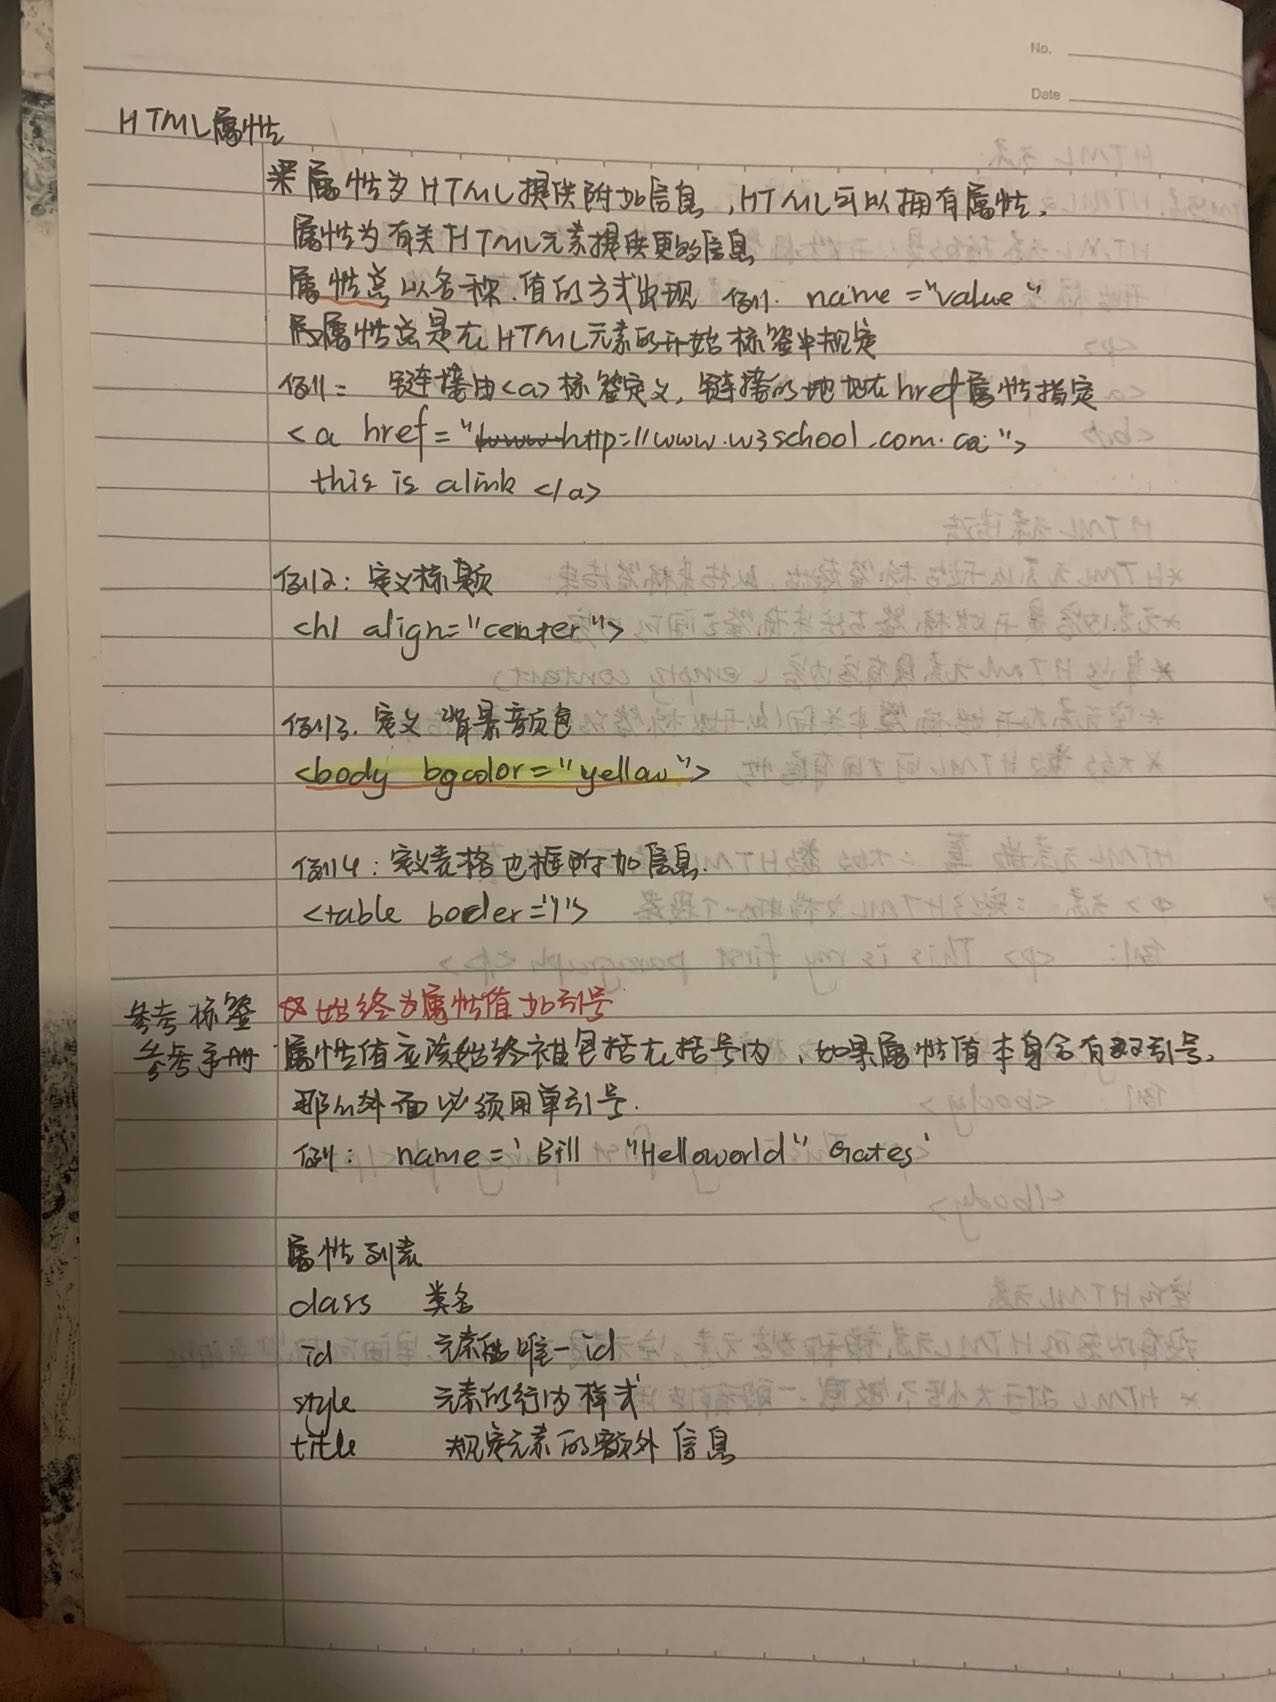 No.
Date
HTML属性
※属性为HTML提供附加信息，HTML可以拥有属性，
属性为有关HTML元素提供更多信息
属性总以名称.值的方式出现 例1. name="value"
属性总是在HTML元素的开始标签中规定
例1: 链接由<a>标签定义，链接的地址在href属性指定
<a href="http://www.w3school.com.ca">
this is alink </a>
例2: 定义标题
<h1 align="center">
例3. 定义 背景颜色
<body bgcolor="yellow">
例4: 定义表格 框附加信息.
<table border="1">
参考标签 ☆始终为属性值加引号
参考手册 属性值应该始终被包括在括号内，如果属性值本身含有双引号，
那么外面必须用单引号.
例: name='Bill "Helloworld" Gates'
属性列表
class 类名
id 元素的唯一id
style 元素的行内样式
title 规定元素的额外信息